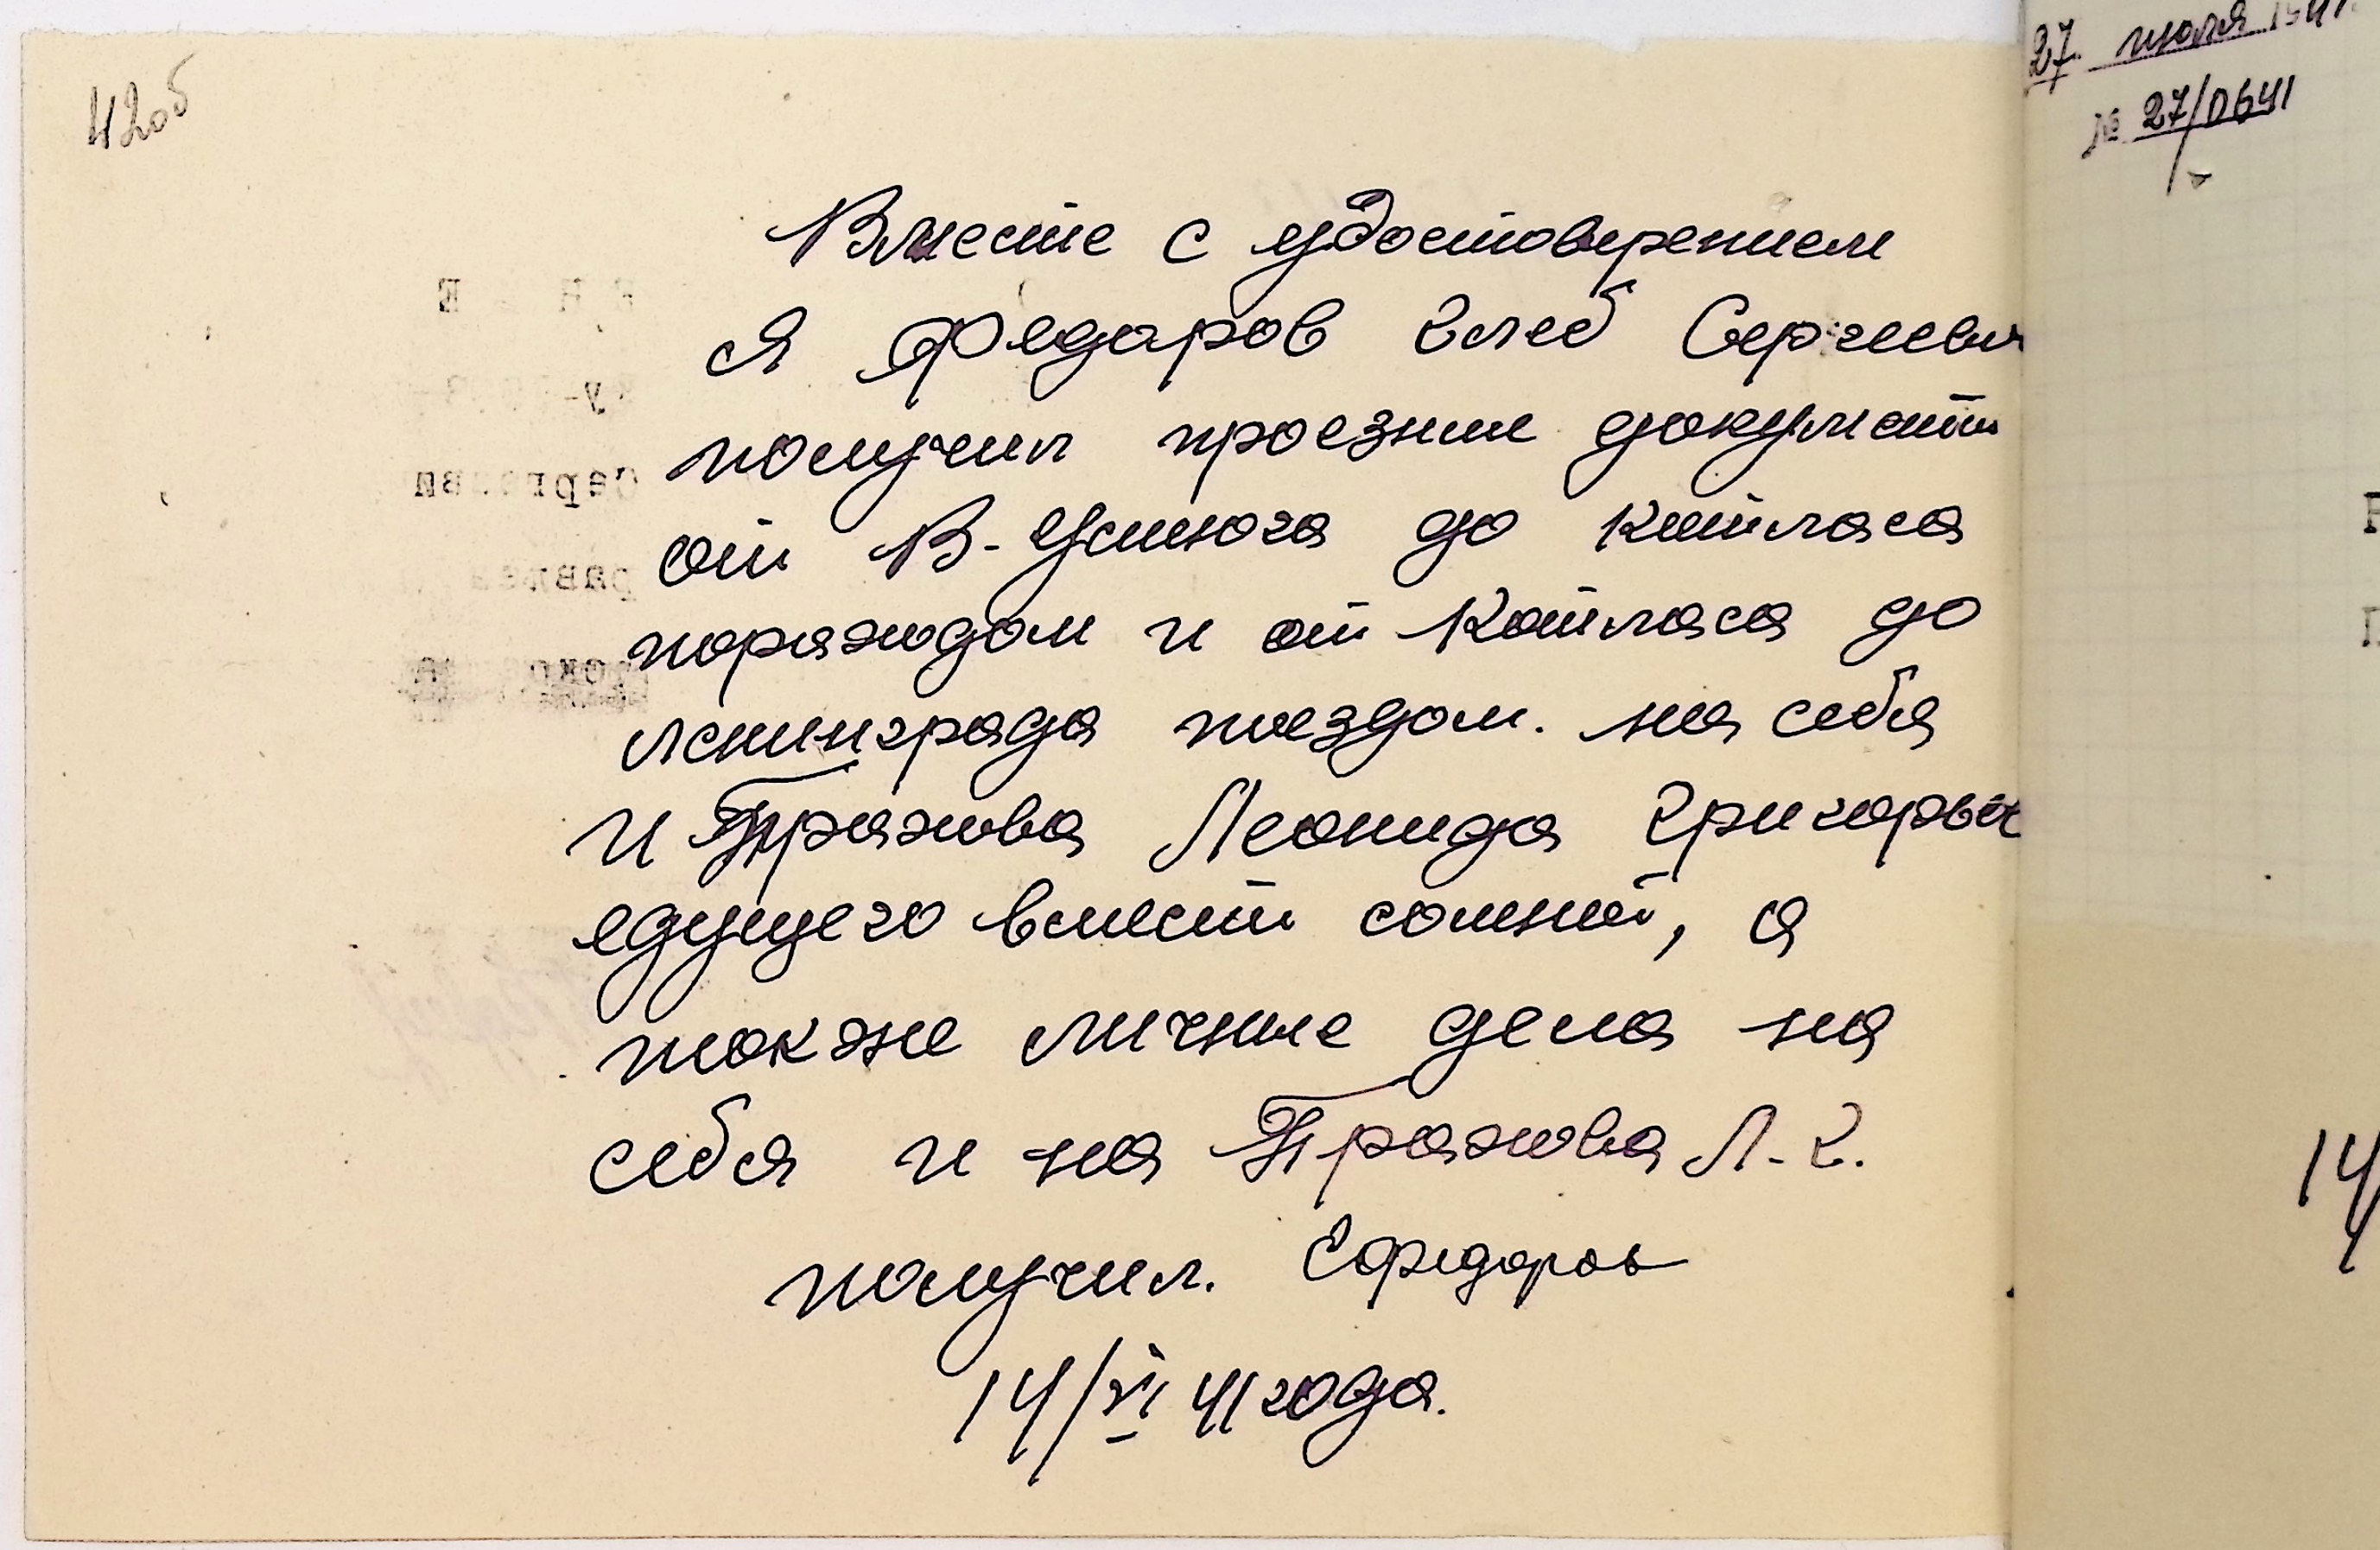 42об
27 июля 1941
№ 27/0641
Вместе с удостоверением
я Федаров Глеб Сергееви
получил проезние документи
от В-Устюга до Котласа
пораходом и от Котласа до
Ленинграда поездом. на себя
и Трахова Леонида Григорьев
едущего вместе сомной, а
также личные дела на
себя и на Трахова Л-Г.
получил. ГФедоров
14/VI 41 года.
14